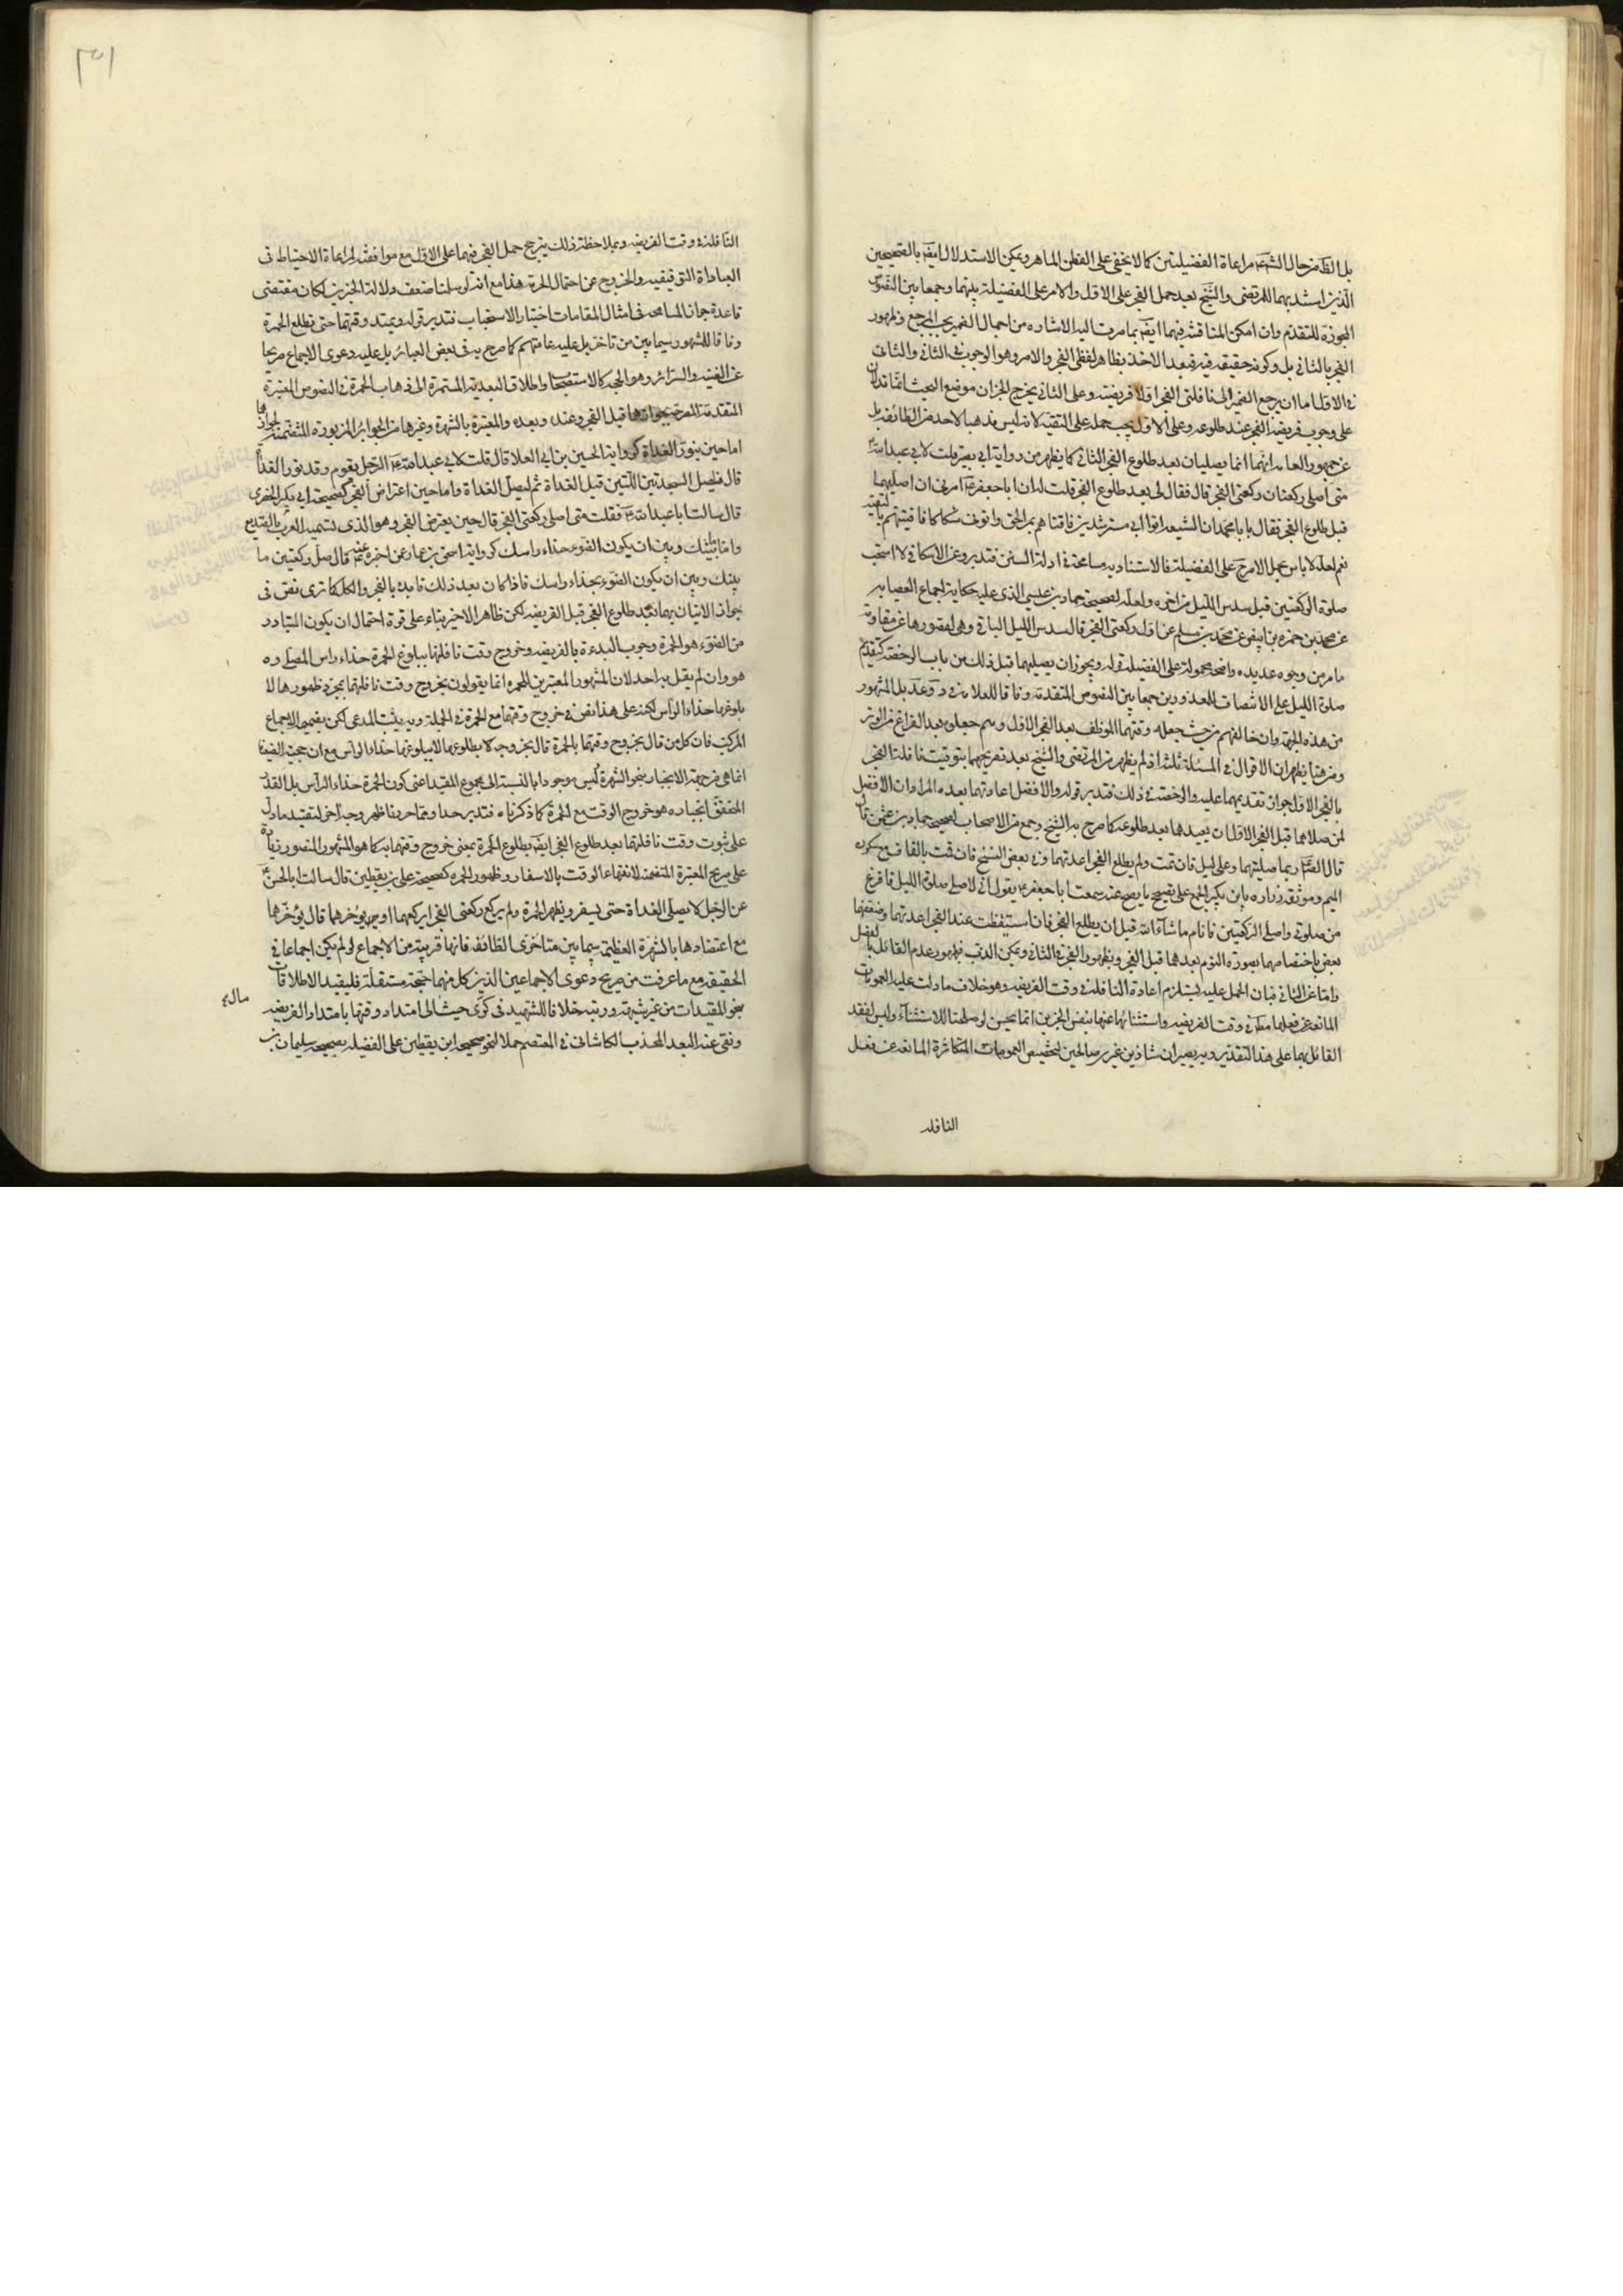 بل الظاهر من حال الشيعة مراعاة الفضيلتين كما لا يخفى على الفطن الماهر ويمكن الاستدلال ايضا بالصحيحين
الذين استدل بهما للمرتضى والشيخ بعد حمل الفجر على الاول والامر على الفضيلة بينهما وجمعا بين النصوص
المجوزة للتقدم وان امكن المناقشة فيهما ايضا بما مرت اليه الاشارة من اجمال الضمير المرجع وظهور
الفجر بالثاني بل وكونه حقيقة فيه فبعد الاخذ بظاهر لفظي الفجر والامر وهو الوجوب في الثاني والثاني
في الاول اما ان يرجع الضمير الى نافلتي الفجر اولا فريضته وعلى الثاني يخرج الخبران موضع البحث
على وجوب فريضة الفجر عند طلوعه وعلى الاول يجب حمله على التقية لانه ليس مذهبا لاحد من الطائفة بل
عن جمهور العامة انهما انما يصليان بعد طلوع الفجر الثاني كما يظهر من رواية ابي بصير قلت لابي عبد الله
متى اصلي ركعتي الفجر قال فقال لي بعد طلوع الفجر قلت له ان ابا جعفر امرني ان اصليهما
قبل طلوع الفجر فقال يا با محمد ان الشيعة اتوا ابي مسترشدين فافتاهم بمر الحق واتوني شكاكا فافتيتهم بالتقية
نعم لعله لا باس بحمل الامر على الفضيلة فالاستناد به مسامحة في ادلة السنن فتدبر وعن الاسكافي لا استحب
صلوة الركعتين قبل سدس الليل من اخره ولعله لصحيحة حماد بن عيسى الذي عليه حكاية اجماع العصابة
عن محمد بن حمزة بن بيض عن محمد بن مسلم عن اول ركعتي الفجر قال سدس الليل الباقي وهي لقصورها عن مقاومة
ما مر من وجوه عديدة واضحة محمولة على الفضيلة قوله ويجوز ان يصليهما قبل ذلك من باب الرخصة كتقديم
صلوة الليل على الانتصاف للمعذورين جمعا بين النصوص المتقدمة وفاقا للعلامة في وعد بل المشهور
من هذه الجهة وان خالفهم من حيث جعله وقتهما الموظف بعد الفجر الاول وهم جعلوه بعد الفراغ من الوتر
ومن هنا يظهر ان الاقوال في المسئلة ثلثة اذ لم يظهر من المرتضى والشيخ بعد تصريحهما بتوقيت نافلة الفجر
بالفجر الاول جواز تقديمهما عليه والرخصة في ذلك فتدبر قوله والافضل اعادتهما بعده المراد ان الافضل
لمن صلاهما قبل الفجر الاول ان يعيدهما بعد طلوعه كما صرح به الشيخ وجمع من الاصحاب لصحيحة حماد بن عثمن قال
قال الصادق ربما صليتهما وعلي ليل فان قمت ولم يطلع الفجر اعدتهما وفي بعض النسخ فان قمت بالقاف مع سكون
الميم وموثقة زرارة بابن بكير المجمع على تصحيح ما يصح عنه سمعت ابا جعفر يقول اني لاصلي صلوة الليل فافرغ
من صلوتي واصلي الركعتين فانام ما شاء الله قبل ان يطلع الفجر فان استيقظت عند الفجر اعدتهما وضعفهما
بعض باختصاصهما بصورة النوم بعدهما قبل الفجر وبظهور الفجر في الثاني ويمكن الذب بظهور عدم القائل بالفصل
واما عن الثاني فبان الحمل عليه يستلزم اعادة النافلة في وقت الفريضة وهو خلاف ما دلت عليه العمومات
المانعة عن فعلها مطلقا في وقت الفريضة واستثنائهما عنها بنفس الخبرين انما يحسن لو صلحا للاستثناء وليس لفقد
القائل بهما على هذا التقدير وبه يصيران شاذين غير صالحين لتخصيص العمومات المتكاثرة المانعة عن فعل
النافلة
النافلة وقت الفريضة وبملاحظة ذلك يترجح حمل الفجر فيهما على الاول مع موافقته لمراعاة الاحتياط في
العبادة التوقيفية والخروج عن احتمال الحرمة هذا مع انه لو سلمنا ضعف دلالة الخبرين لكان مقتضى
قاعدة جواز المسامحة في امثال المقامات اختيار الاستحباب فتدبر قوله ويمتد وقتهما حتى تطلع الحمرة
وفاقا للمشهور سيما بين من تاخر بل عليه عامتهم كما صرح به في بعض العبائر بل عليه دعوى الاجماع صريحا
عن الغنية والسرائر وهو الحجة كالاستصحاب واطلاق البعدية المستمرة الى ذهاب الحمرة في النصوص المعتبرة
المتقدمة المصرحة بجوازها قبل الفجر وعنده وبعده والمعتبرة بالشهرة وغيرها من الجوابر المزبورة المتضمنة لجوازها
اما حين ينور الغداة كرواية الحسين بن ابي العلا قال قلت لابي عبد الله الرجل يقوم وقد نور الغداة
قال فليصل السجدتين اللتين قبل الغداة ثم ليصل الغداة واما حين اعتراض الفجر كصحيحة ابي بكر الحضرمي
قال سالت ابا عبد الله فقلت متى اصلي ركعتي الفجر قال حين يعترض الفجر وهو الذي تسميه العرب الصديع
واما بينك وبين ان يكون الضوء حذاء راسك كرواية اسحق بن عمار عمن اخبره عنه قال صل ركعتين ما
بينك وبين ان يكون الضوء بحذاء راسك فاذا كان بعد ذلك فابدء بالفجر والكل كما ترى نص في
جواز الاتيان بهما بعد طلوع الفجر قبل الفريضة لكن ظاهر الاخير بناء على قوة احتمال ان يكون المتبادر
من الضوء هو الحمرة وجوب البدءة بالفريضة وخروج وقت نافلتها ببلوغ الحمرة حذاء راس المصلي وه
هو وان لم يقل به احد لان المشهور المعتبرين للحمرة انما يقولون بخروج وقت نافلتها بمجرد ظهورها لا
بلوغها حذاء الراس لكنه على هذا نص في خروج وقتهما مع الحمرة في الجملة وبه يثبت المدعى لكن بضميمة الاجماع
المركب فان كل من قال بخروج وقتهما بالحمرة قال بخروجه لا بطلوعها لا ببلوغها حذاء الراس مع ان حجية الضعيفة
انما هي من جهة الانجبار بنحو الشهرة ليس موجودا بالنسبة الى مجموع المقيد اعني كون الحمرة حذاء الراس بل القدر
المحقق انجباره هو خروج الوقت مع الحمرة كما ذكرناه فتدبر جدا ومما حررنا ظهر وجه اخر لتقييد ما دل
على ثبوت وقت نافلتهما بعد طلوع الفجر ايضا بطلوع الحمرة بمعنى خروج وقتهما به كما هو المشهور المنصور زيادة
على صريح المعتبرة المتضمنة لانتهاء الوقت بالاسفار وظهور الحمرة كصحيحة علي بن يقطين قال سالت ابا الحسن
عن الرجل لا يصلي الغداة حتى يسفر ويظهر الحمرة ولم يركع ركعتي الفجر ايركعهما او يؤخرهما قال يؤخرهما
مع اعتضادها بالشهرة العظيمة سيما بين متاخري الطائفة فانها قريبة من الاجماع لو لم يكن اجماعا في
الحقيقة مع ما عرفت من صريح دعوى الاجماعين الذين كل منهما حجة مستقلة فليقيد الاطلاقات
بنحو المقيدات من غير شبهة وريبة خلافا للشهيد في كرى حيث مال الى امتداد وقتها بامتداد الفريضة
ونفى عنه البعد المحدث الكاشاني في المعتصم حملا لنحو صحيحة ابن يقطين على الفضيلة بصحيحة سليمان بن